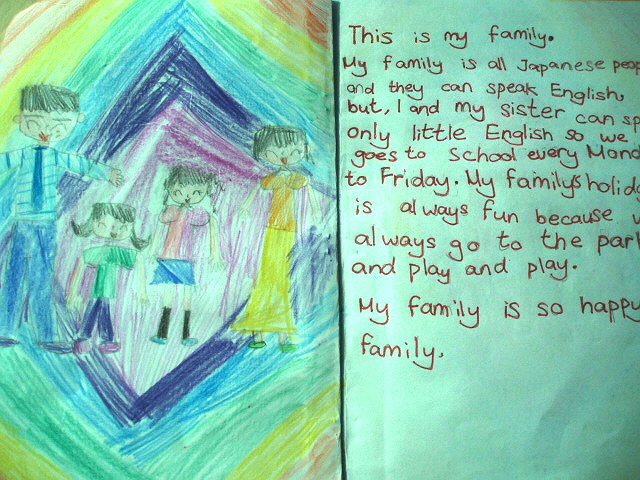 This is my family.
My family is all Japanese peop
and they can speak English,
but, I and my sister can sp
only little English so we
goes to school every Mond
to Friday. My family's holid
is always fun because w
always go to the par
and play and play.
My family is so happy
family.